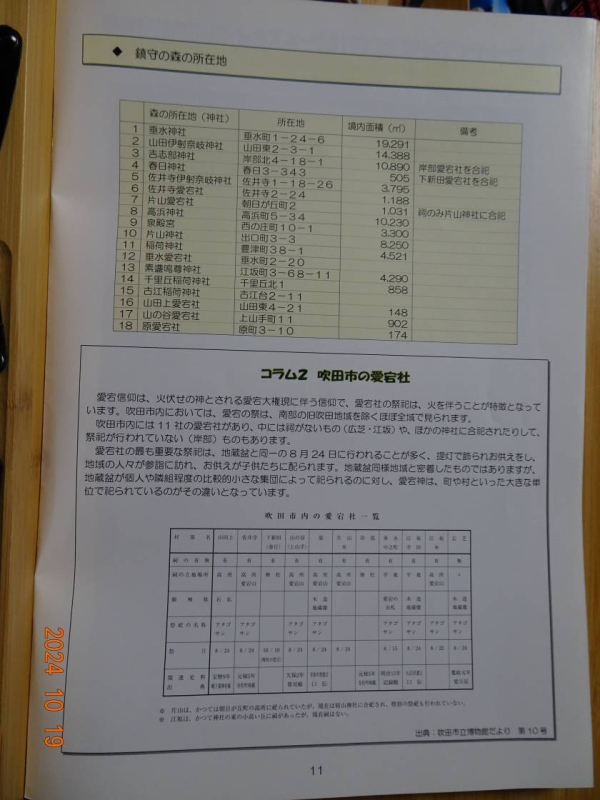 ◆ 鎮守の森の所在地
森の所在地（神社） 所在地 境内面積（㎡） 備考
1 垂水神社 垂水町1－24－6 19,291
2 山田伊射奈岐神社 山田東2－3－1 14,388
3 吉志部神社 岸部北4－18－1 10,890 岸部愛宕社を合祀
4 春日神社 春日3－343 505 下新田愛宕社を合祀
5 佐井寺伊射奈岐神社 佐井寺1－18－26 3,795
6 佐井寺愛宕社 佐井寺2－24 1,188
7 片山愛宕社 朝日が丘町2 1,031 祠のみ片山神社に合祀
8 高浜神社 高浜町5－34 10,230
9 泉殿宮 西の庄町10－1 3,300
10 片山神社 出口町3－3 8,250
11 稲荷神社 豊津町38－1 4,521
12 垂水愛宕社 垂水町2－20
13 素盞嗚尊神社 江坂町3－68－11 4,290
14 千里丘稲荷神社 千里丘北1 858
15 古江稲荷神社 古江台2－11
16 山田上愛宕社 山田東4－21 148
17 山の谷愛宕社 上山手町11 902
18 原愛宕社 原町3－10 174
コラム2 吹田市の愛宕社
愛宕信仰は、火伏せの神とされる愛宕大権現に伴う信仰で、愛宕社の祭祀は、火を伴うことが特徴となって
います。吹田市内においては、愛宕の祭は、南部の旧吹田地域を除くほぼ全域で見られます。
吹田市内には11社の愛宕社があり、中には祠がないもの（広芝・江坂）や、ほかの神社に合祀されたりして、
祭祀が行われていない（岸部）ものもあります。
愛宕社の最も重要な祭祀は、地蔵盆と同一の8月24日に行われることが多く、提灯で飾られお供えをし、
地域の人々が参詣に訪れ、お供えが子供たちに配られます。地蔵盆同様地域と密着したものではありますが、
地蔵盆が個人や隣組程度の比較的小さな集団によって祀られるのに対し、愛宕神は、町や村といった大きな単
位で祀られているのがその違いとなっています。
吹田市内の愛宕社一覧
祠の有無 有 有 有 有 有 有 有 有 有 有 無
祠の立地場所
祭祀の名称
祭日 8／24
※ 片山は、かつては朝日が丘町の高所に祀られていたが、現在は片山神社に合祀され、独自の祭祀も行われていない。
※ 江坂は、かつて神社の東の小高い丘に祠があったが、現在祠はない。
出典：吹田市立博物館だより 第10号
11
2024 10 19